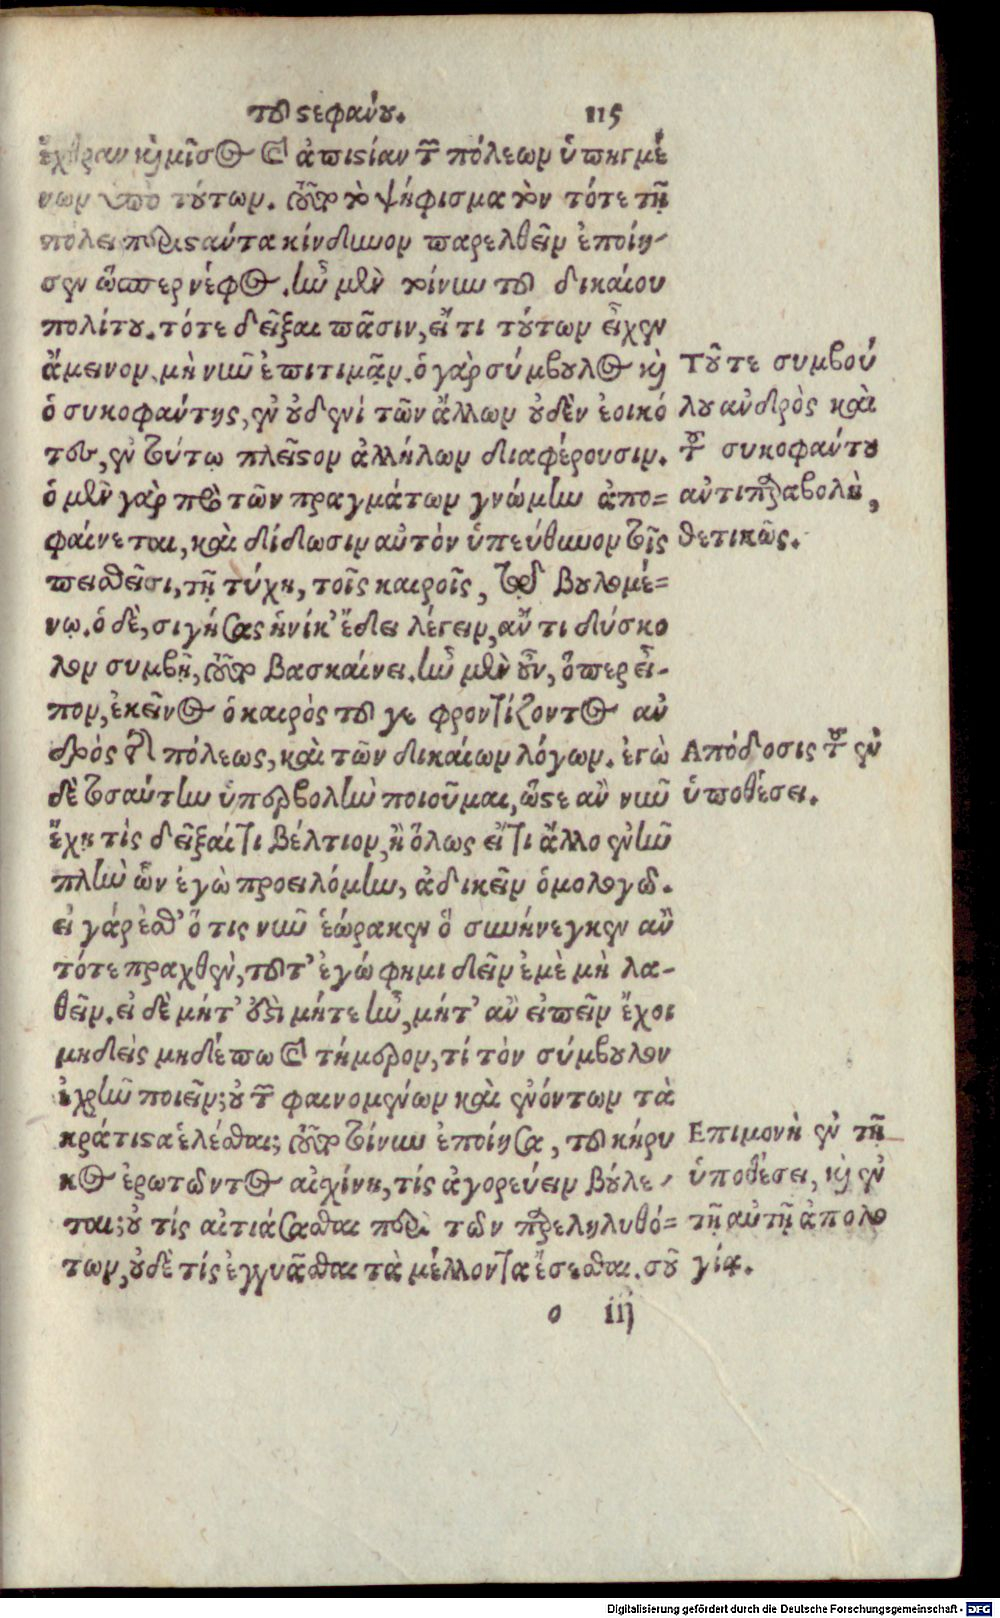 τοῦ στεφάνου. 115
ἔχθραν καὶ μῖσος καὶ ἀπιστίαν τῶν πόλεων ὑπηγμέ
νων ὑπὸ τούτων. τοῦτο τὸ ψήφισμα τὸν τότε τῇ
πόλει περιστάντα κίνδυνον παρελθεῖν ἐποίη-
σεν ὥσπερ νέφος. ἦν μὲν τοίνυν τοῦ δικαίου
πολίτου. τότε δεῖξαι πᾶσιν, εἴ τι τούτων εἶχεν
ἄμεινον, μὴ νῦν ἐπιτιμᾷν. ὁ γὰρ σύμβουλος καὶ
ὁ συκοφάντης, ἐν οὐδενὶ τῶν ἄλλων οὐδὲν ἐοικό
τες, ἐν τούτῳ πλεῖστον ἀλλήλων διαφέρουσιν.
ὁ μὲν γὰρ πρὸ τῶν πραγμάτων γνώμην ἀπο-
φαίνεται, καὶ δίδωσιν αὑτὸν ὑπεύθυνον τοῖς
πεισθεῖσι, τῇ τύχῃ, τοῖς καιροῖς, τῷ βουλομέ-
νῳ. ὁ δὲ, σιγήσας ἡνίκ' ἔδει λέγειν, ἄν τι δύσκο
λον συμβῇ, τοῦτο βασκαίνει. ἦν μὲν οὖν, ὅπερ εἶ-
πον, ἐκεῖνος ὁ καιρὸς τοῦ γε φροντίζοντος ἀν
δρὸς τῆς πόλεως, καὶ τῶν δικαίων λόγων. ἐγὼ
δὲ τοσαύτην ὑπερβολὴν ποιοῦμαι, ὥστε ἂν νῦν
ἔχῃ τὶς δεῖξαί τι βέλτιον, ἢ ὅλως εἴ τι ἄλλο ἐνῆν
πλὴν ὧν ἐγὼ προειλόμην, ἀδικεῖν ὁμολογῶ.
εἰ γάρ ἐσθ' ὅ τις νῦν ἑώρακεν ὃ συνήνεγκεν ἂν
τότε πραχθὲν, τοῦτ' ἐγώ φημι δεῖν ἐμὲ μὴ λα-
θεῖν. εἰ δὲ μήτ' ἔστι μήτε ἦν, μήτ' ἂν εἰπεῖν ἔχοι
μηδεὶς μηδέπω καὶ τήμερον, τί τὸν σύμβουλον
ἐχρῆν ποιεῖν; οὐ τῶν φαινομένων καὶ ἐνόντων τὰ
κράτιστα ἑλέσθαι; τοῦτο τοίνυν ἐποίησα, τοῦ κήρυ
κος ἐρωτῶντος αἰσχίνη, τίς ἀγορεύειν βούλε-
ται; οὐ τίς αἰτιάσασθαι περὶ τῶν παρεληλυθό-
των, οὐδὲ τίς ἐγγυᾶσθαι τὰ μέλλοντα ἔσεσθαι. σοῦ
Τοῦ τε συμβού
λου ἀνδρὸς καὶ
τοῦ συκοφάντου
ἀντιπαραβολὴ,
θετικῶς.
Απόδοσις τοῦ ἐν
ὑποθέσει.
Επιμονὴ ἐν τῇ
ὑποθέσει, καὶ ἐν
τῇ αὐτῇ ἀπολο
γίᾳ.
o iij
Digitalisierung gefördert durch die Deutsche Forschungsgemeinschaft - DFG